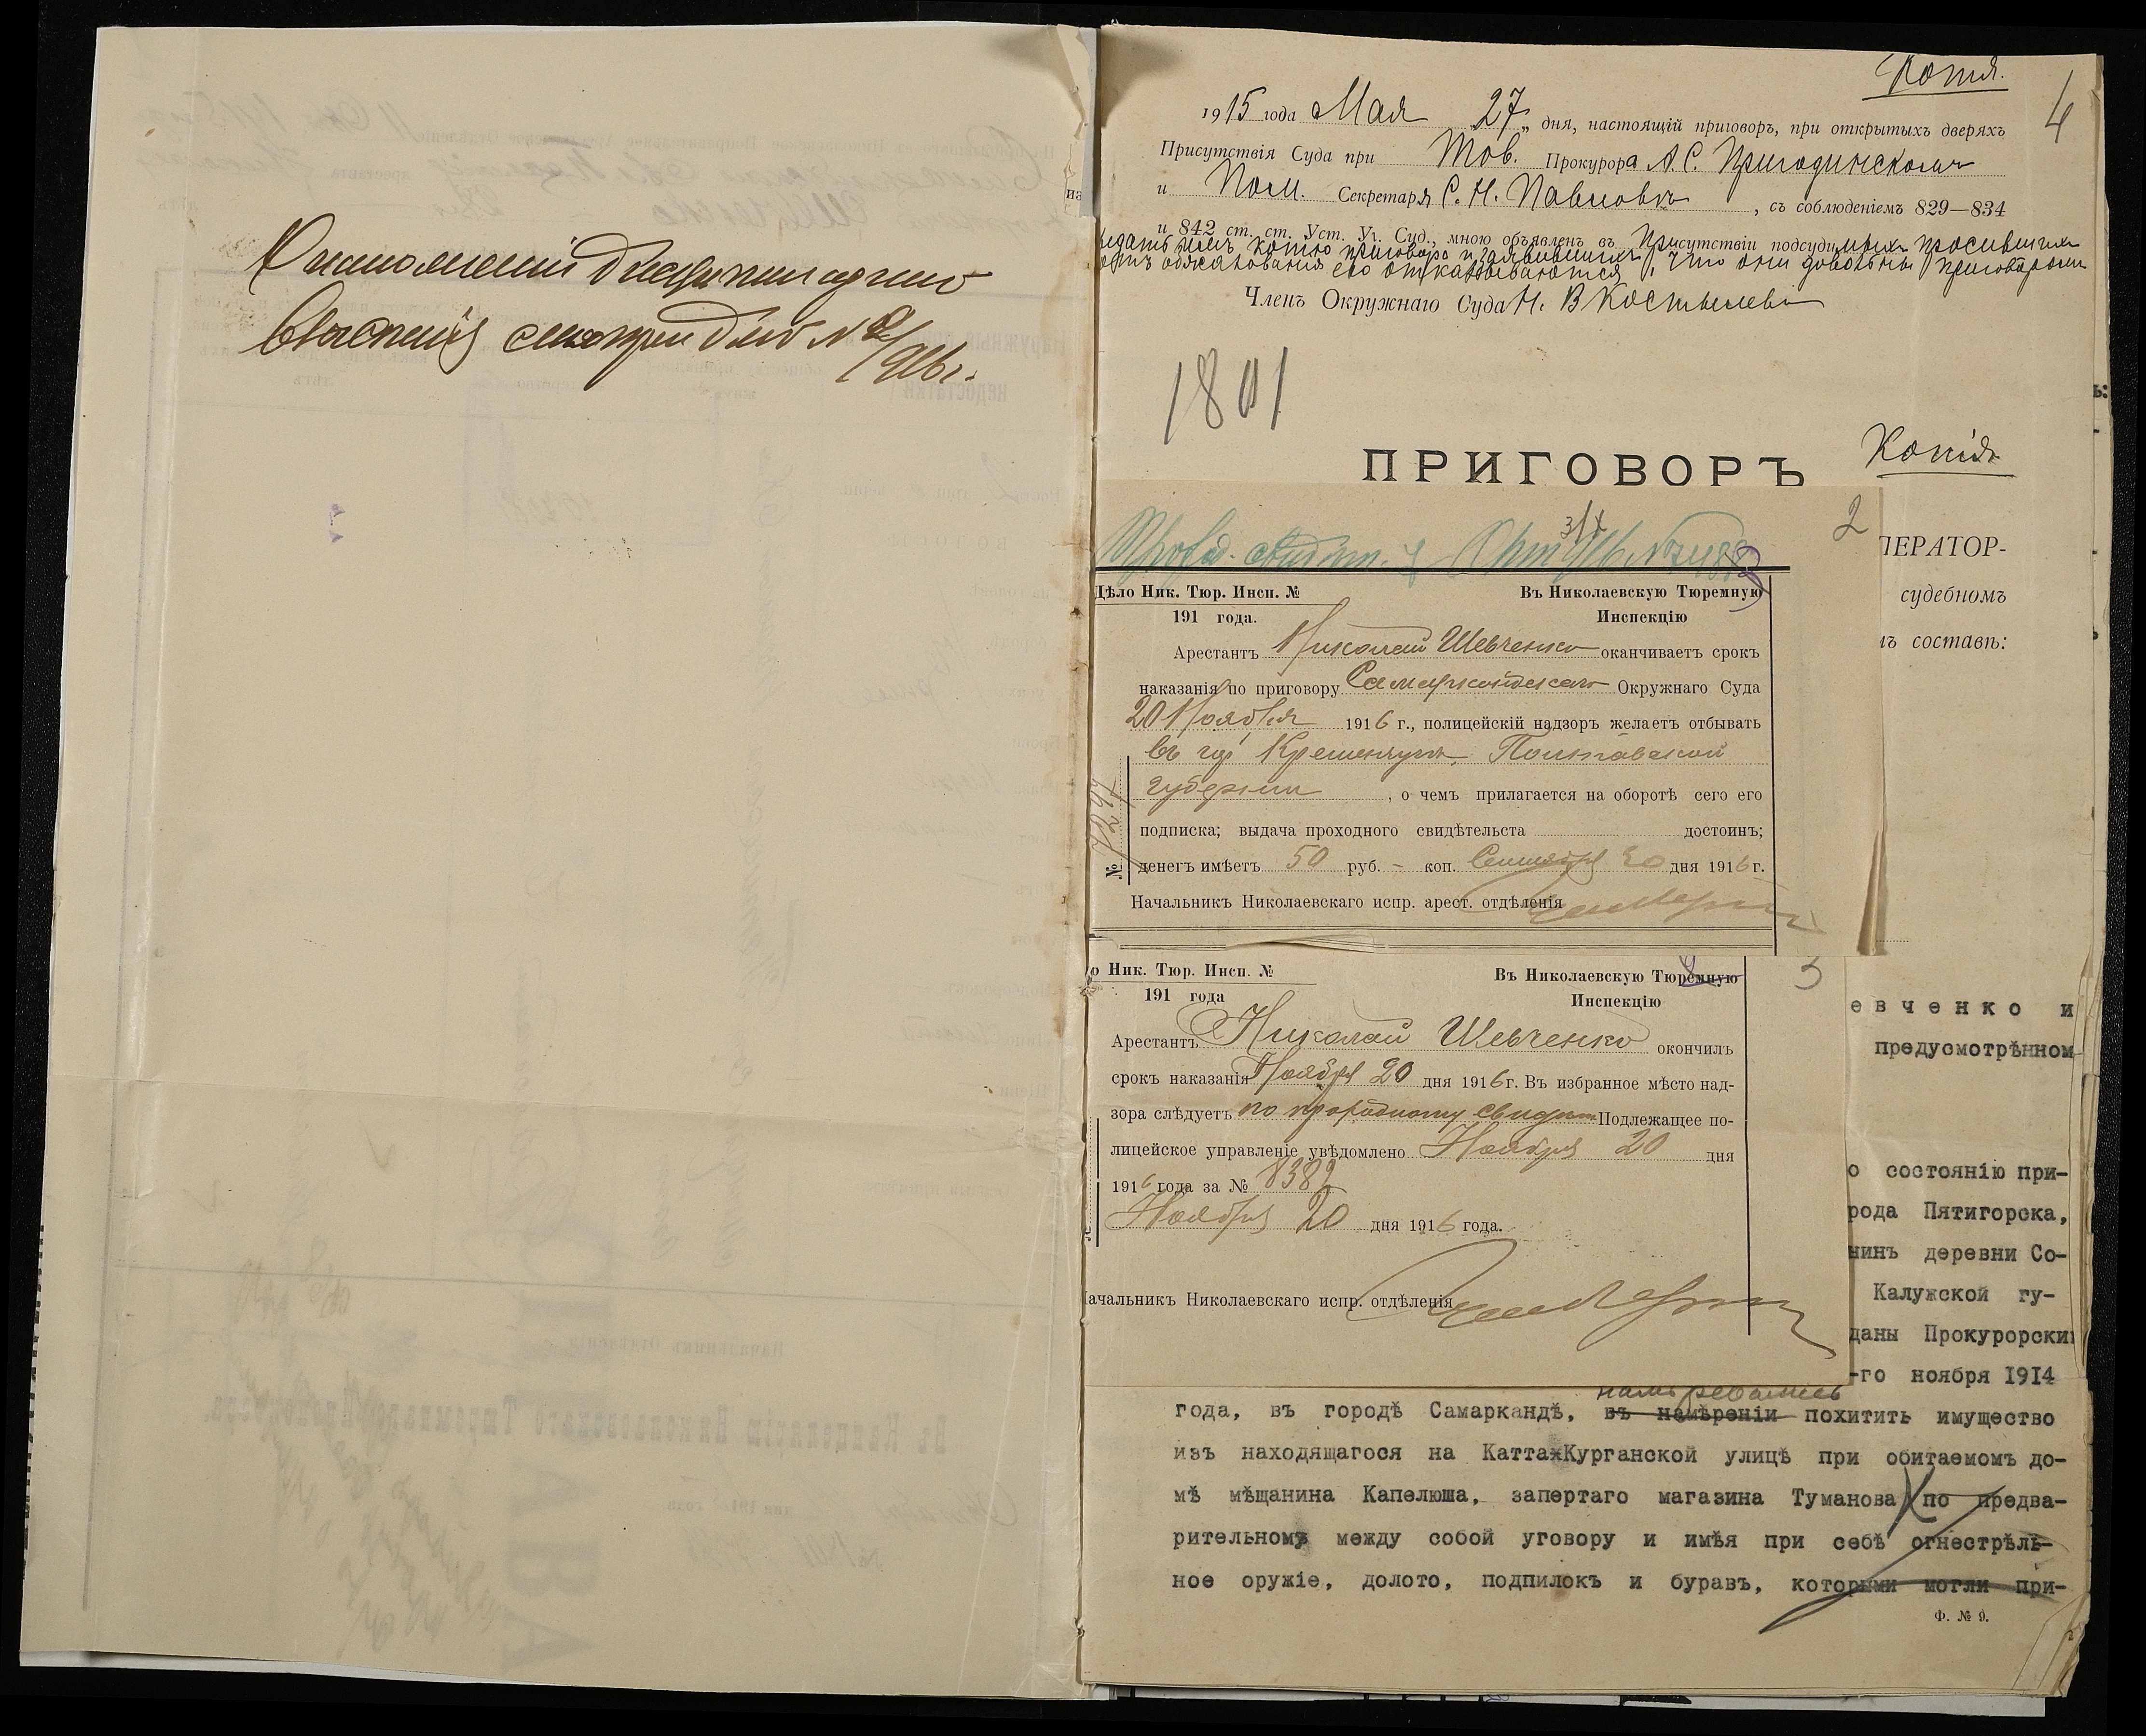 О наложеніи дисциплинарнаго
взысканія смотри дѣло № 2/916 г.
Копія.
4
1915 года Мая 27 „ дня, настоящій приговоръ, при открытыхъ дверяхъ
Присутствія Суда при Тов. Прокурора А. С. Пригодинскомъ
и Пом. Секретаря С. Н. Павловѣ, съ соблюденіемъ 829—834
и 842 ст. ст. Уст. Уг. Суд., мною объявленъ въ Присутствіи подсудимыхъ просившихъ
выдать имъ копію приговора и заявившихъ, что они довольны приговоромъ
отъ обжалованія его отказываются.
Членъ Окружнаго Суда Н. В Костылевъ
1801
ПРИГОВОРЪ
Копія
2
ПЕРАТОР-
судебномъ
мъ составѣ:
Проход. свидѣт.
Дѣло Ник. Тюр. Инсп. №
191 года.
Въ Николаевскую Тюремную
Инспекцію
Арестантъ Николай Шевченко оканчиваетъ срокъ
наказанія по приговору Самаркандскаго Окружнаго Суда
20 Ноября 1916 г., полицейскій надзоръ желаетъ отбывать
въ гор Кременчугѣ, Полтавской
губерніи, о чемъ прилагается на оборотѣ сего его
подписка; выдача проходного свидѣтельста достоинъ;
денегъ имѣетъ 50 руб. – коп. Сентября 20 дня 1916 г.
№ 7247
Начальникъ Николаевскаго испр. арест. отдѣленія
3
о Ник. Тюр. Инсп. №
191 года
Въ Николаевскую Тюремную
Инспекцію
Арестантъ Николай Шевченко окончилъ
срокъ наказанія Ноября 20 дня 1916 г. Въ избранное мѣсто над-
зора слѣдуетъ по проходному свидѣт. Подлежащее по-
лицейское управленіе увѣдомлено Ноября 20 дня
1916 года за № 8382
Ноября 20 дня 1916 года.
Начальникъ Николаевскаго испр. отдѣленія
евченко и
предусмотрѣнном
о состоянію при-
рода Пятигорска,
нинъ деревни Со-
Калужской гу-
даны Прокурорски
-го ноября 1914
намѣревались
года, въ городѣ Самаркандѣ, въ намѣреніи похитить имущество
изъ находящагося на КаттахКурганской улицѣ при обитаемомъ до-
мѣ мѣщанина Капелюша, запертаго магазина Туманова по предва-
рительному между собой уговору и имѣя при себѣ огнестрѣль-
ное оружіе, долото, подпилокъ и буравъ, которыми могли при-
Ф. № 9.